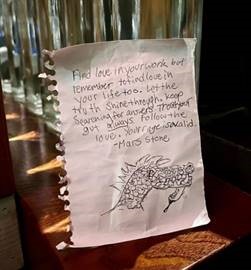 Find love in your work but
remember to find love in
your life too. Let the
truth shine through. Keep
searching for answers. Trust your
gut always. Follow the
love. Your rage is valid.
-Mars Stone